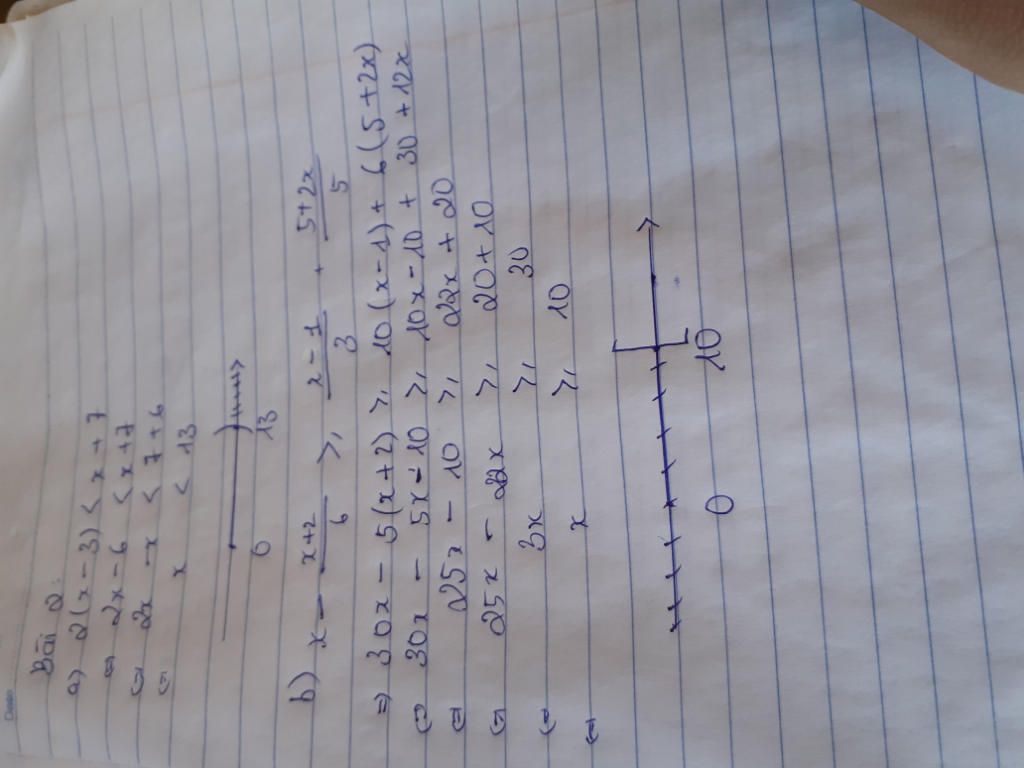 Bài 2:
a) 2(x-3) < x+7
⇔ 2x-6 < x+7
⇔ 2x -x < 7+6
⇔ x < 13
0 13
b) x - (x+2)/6 ≥ (x-1)/3 + (5+2x)/5
⇒ 30x - 5(x+2) ≥ 10(x-1) + 6(5+2x)
⇔ 30x - 5x-10 ≥ 10x-10 + 30+12x
⇔ 25x - 10 ≥ 22x + 20
⇔ 25x - 22x ≥ 20+10
⇔ 3x ≥ 30
⇔ x ≥ 10
0 10